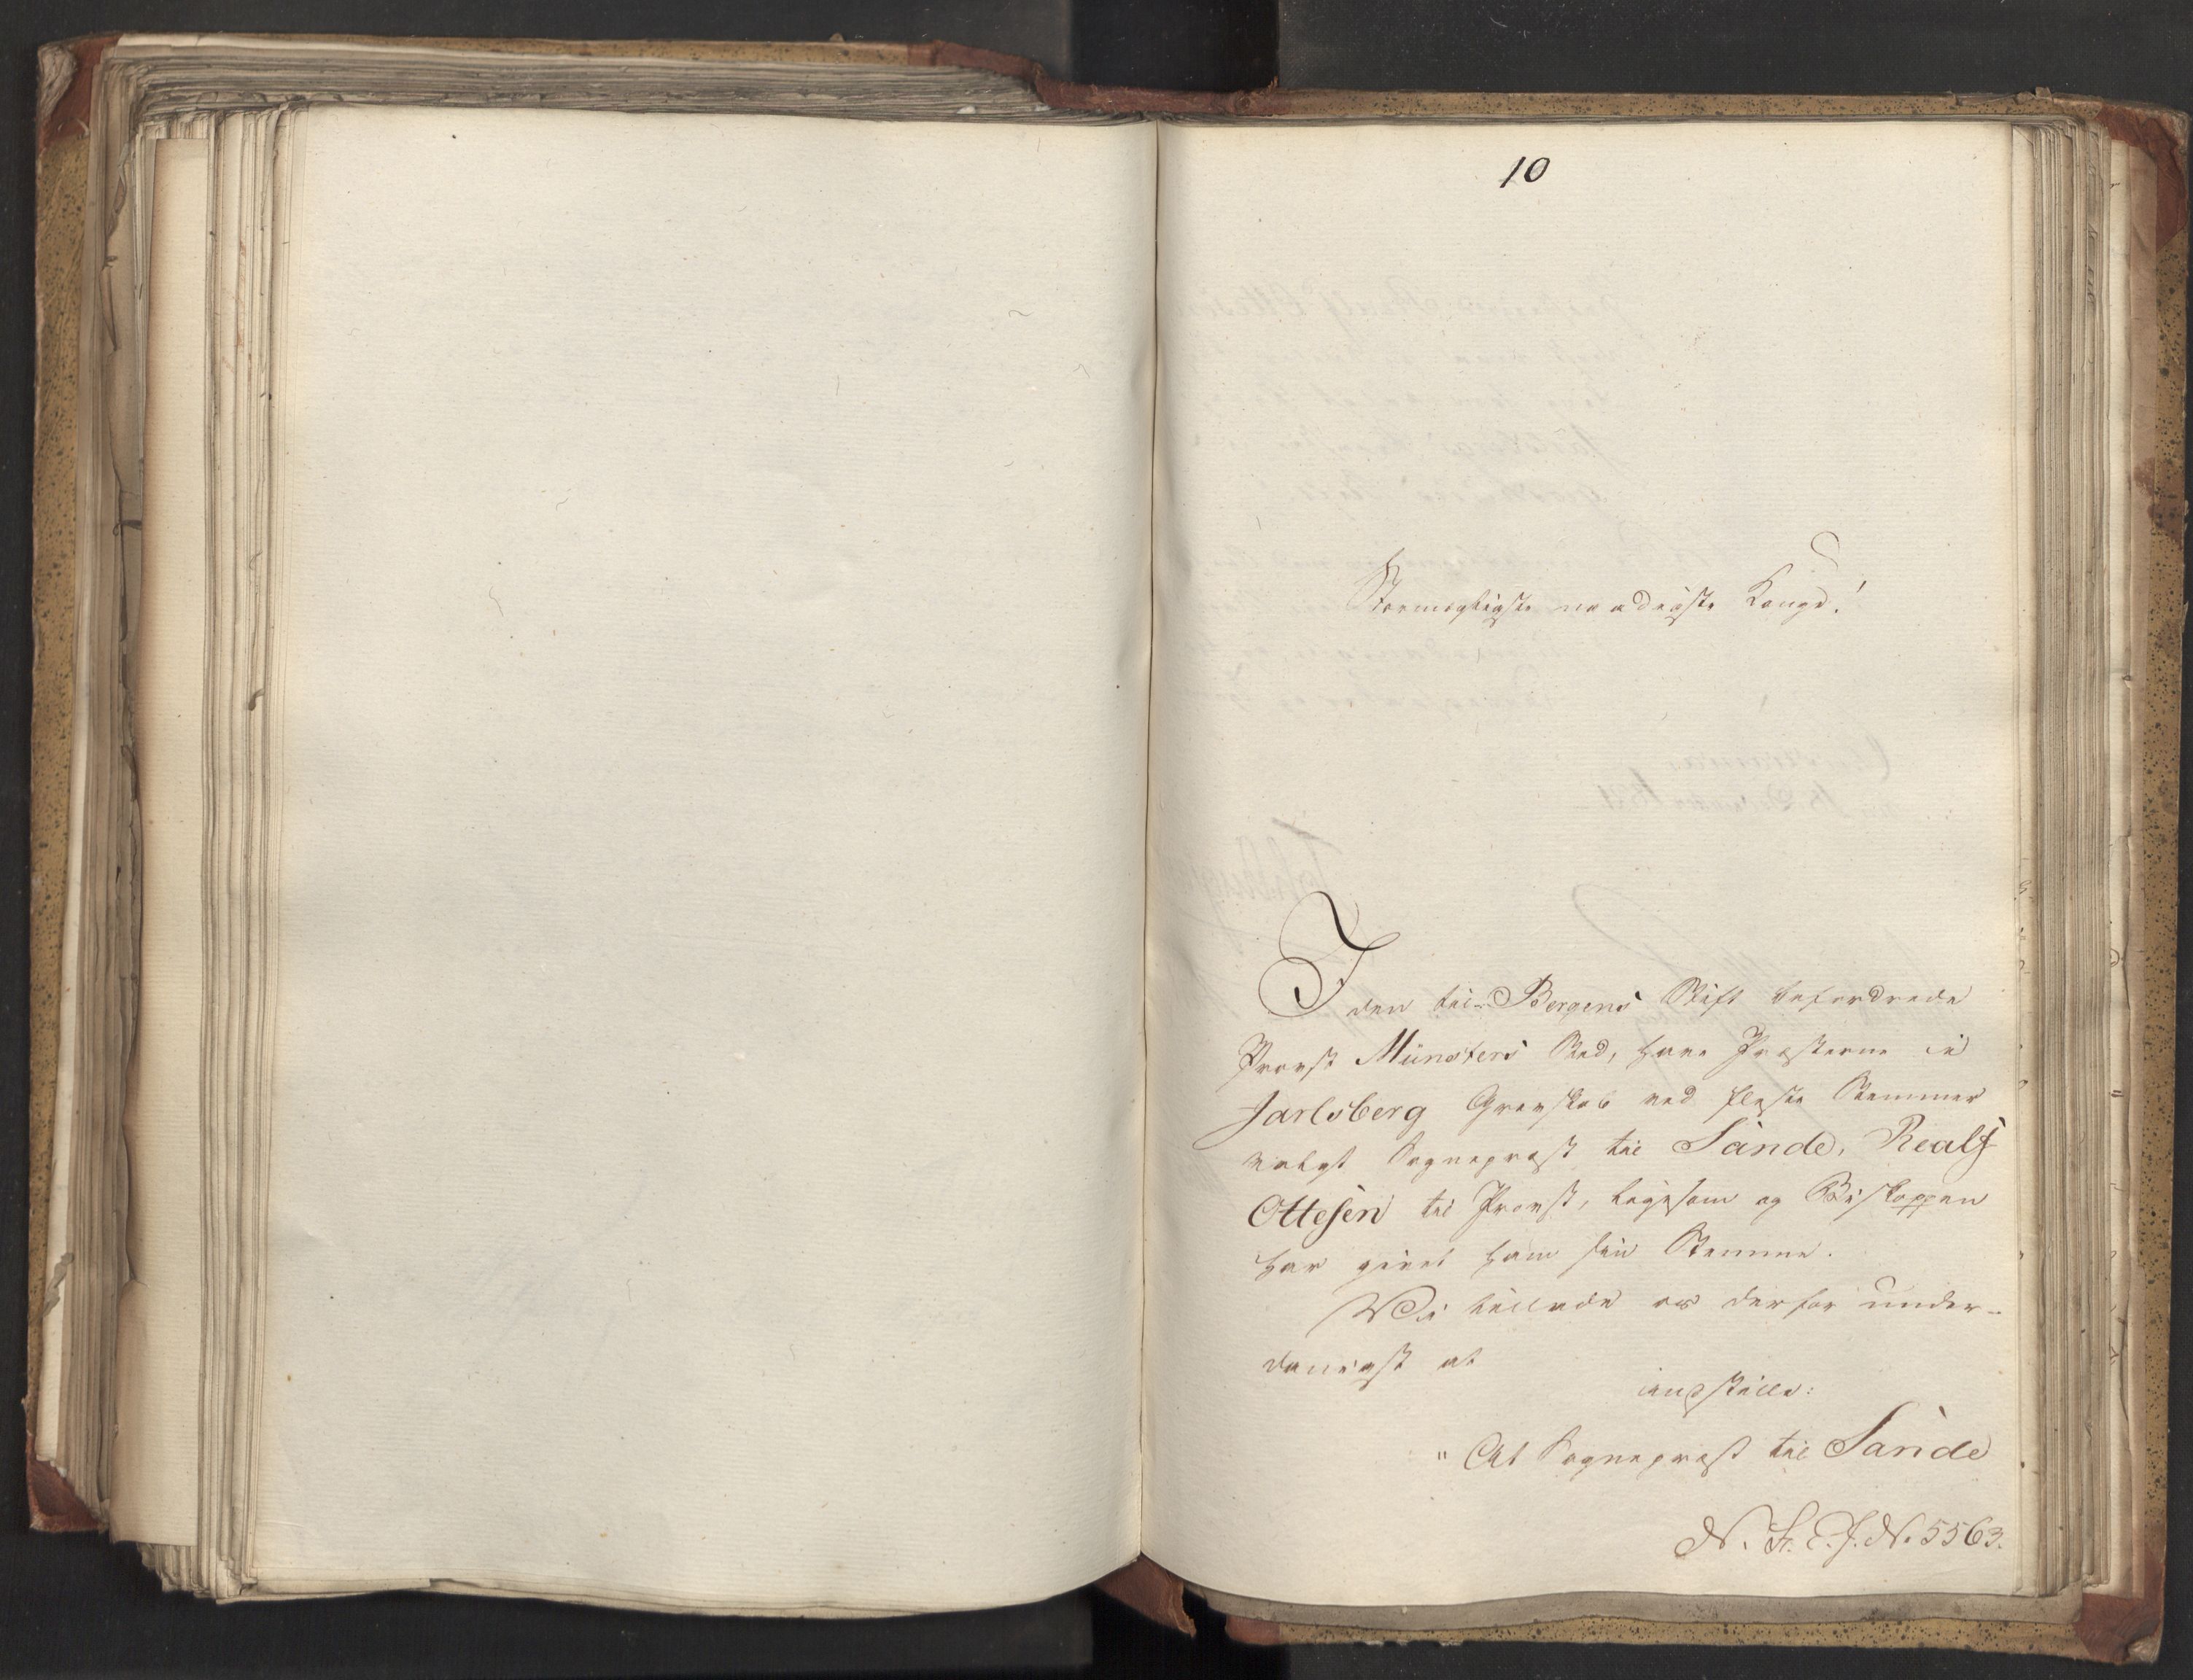 10
Stormægtigste naadigste Konge!
I den til Bergens Stift befordrede
Provst Münsters Sted, have Præsterne i
Jarlsberg Grevskab ved fleste Stemmer
valgt Sognepræst til Sande, Realf
Ottesen til Provst, ligesom og Biskoppen
har givet ham sin Stemme.
Vi tillade os derfor under-
danigst at
indstille:
"At Sognepræst til Sande
N. No. 5563.